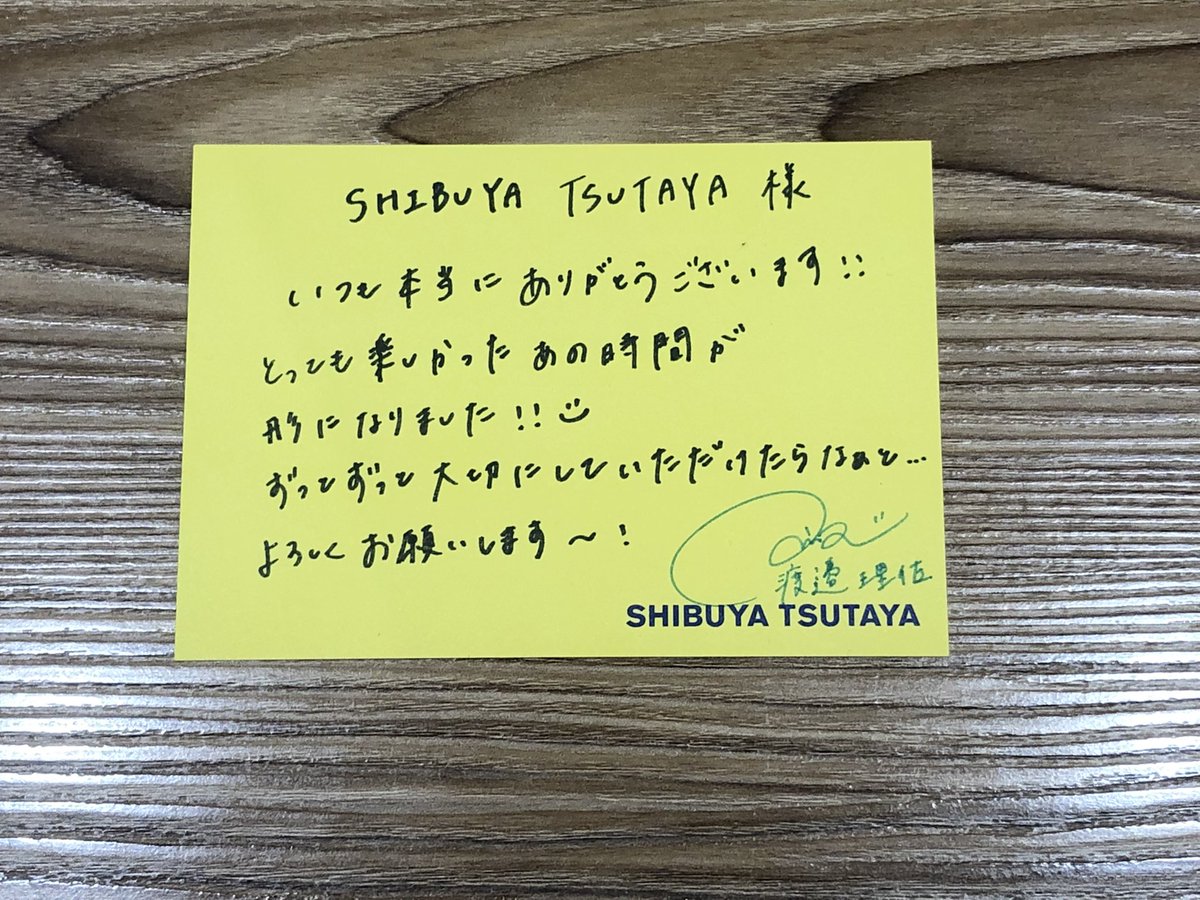 SHIBUYA TSUTAYA 様
いつも本当にありがとうございます!!
とっても楽しかったあの時間が
形になりました!!
ずっとずっと大切にしていただけたらなぁと...
よろしくお願いします〜!
渡邉理佐
SHIBUYA TSUTAYA